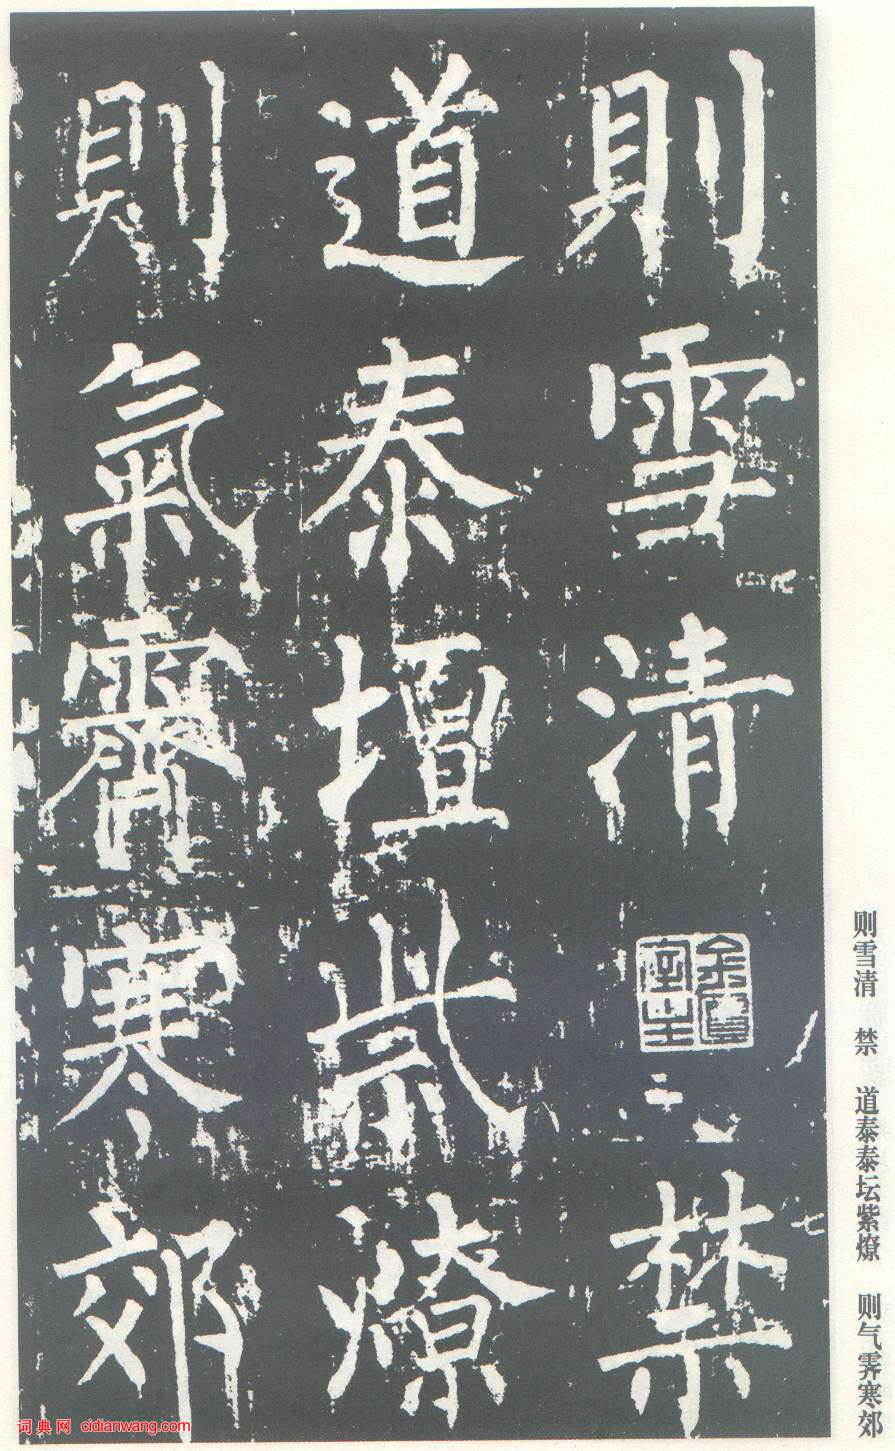 則雪清禁
道泰壇祡燎
則氣霽寒郊
则雪清 禁 道泰泰坛紫燎 则气霁寒郊
词典网 cidianwang.com